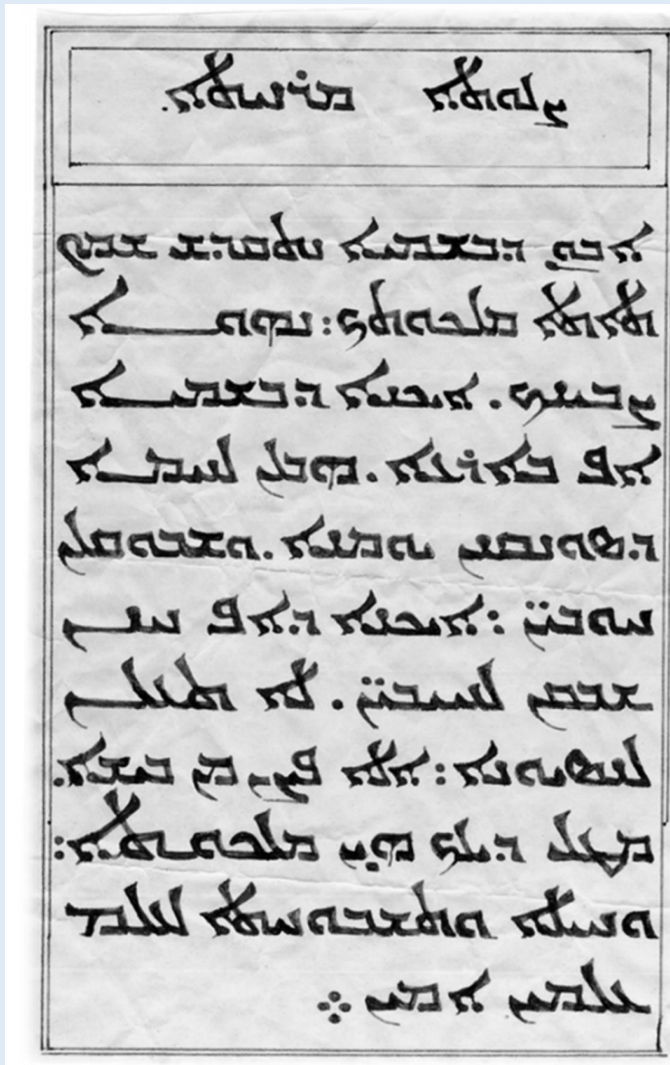 ܨܠܘܬܐ ܡܪܢܝܬܐ.
ܐܒܘܢ ܕܒܫܡܝܐ ܢܬܩܕܫ ܫܡܟ
ܬܐܬܐ ܡܠܟܘܬܟ: ܢܗܘܐ
ܨܒܝܢܟ. ܐܝܟܢܐ ܕܒܫܡܝܐ
ܐܦ ܒܐܪܥܐ. ܗܒ ܠܢ ܠܚܡܐ
ܕܣܘܢܩܢܢ ܝܘܡܢܐ. ܘܫܒܘܩ ܠܢ
ܚܘܒܝ̈ܢ: ܐܝܟܢܐ ܕܐܦ ܚܢܢ
ܫܒܩܢ ܠܚܝܒܝ̈ܢ. ܠܐ ܬܥܠܢ
ܠܢܣܝܘܢܐ: ܐܠܐ ܦܨܢ ܡܢ ܒܝܫܐ.
ܡܛܠ ܕܝܠܟ ܗܝ ܡܠܟܘܬܐ:
ܘܚܝܠܐ ܘܬܫܒܘܚܬܐ ܠܥܠܡ
ܥܠܡܝܢ ܐܡܝܢ ܀